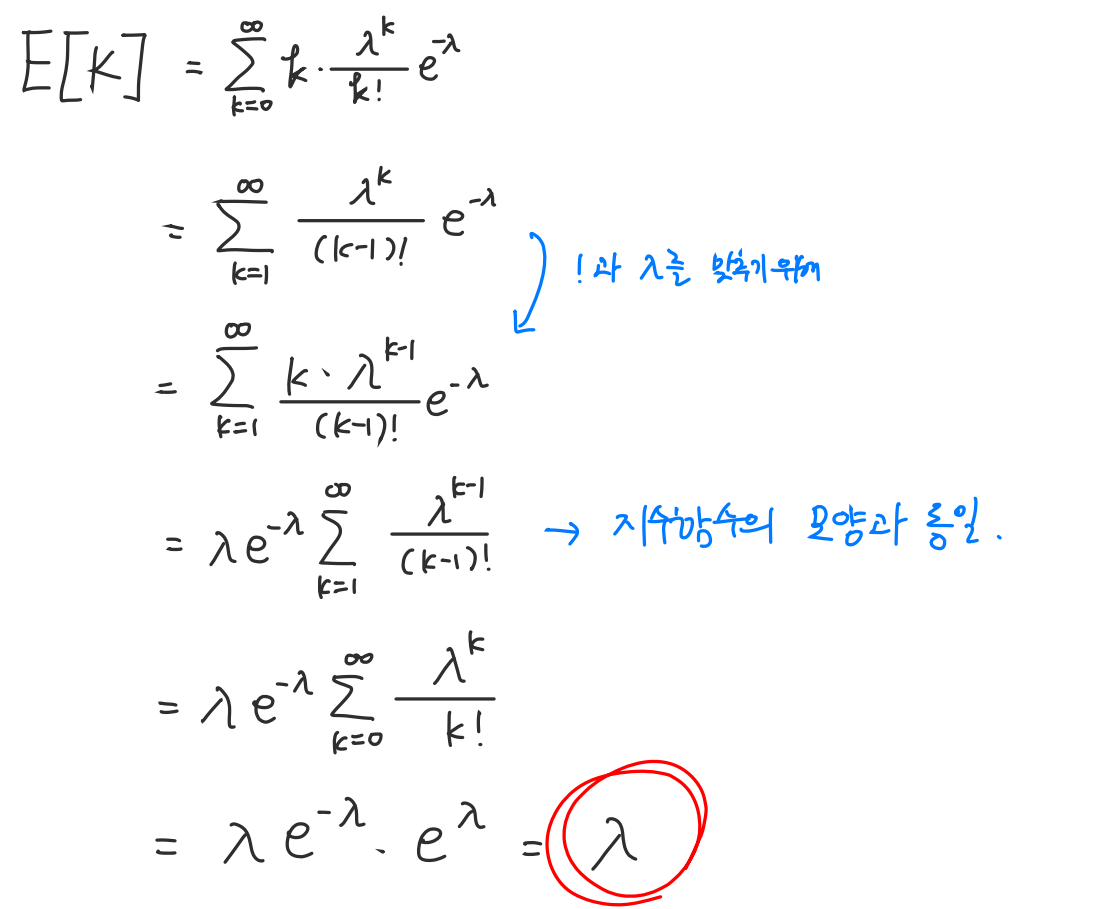 E[K] = ∑_{k=0}^{∞} k · \frac{λ^k}{k!} e^{-λ}
= ∑_{k=1}^{∞} \frac{λ^k}{(k-1)!} e^{-λ}
!과 λ를 맞추기 위해
= ∑_{k=1}^{∞} \frac{k · λ^{k-1}}{(k-1)!} e^{-λ}
= λe^{-λ} ∑_{k=1}^{∞} \frac{λ^{k-1}}{(k-1)!} → 지수함수의 모양과 동일.
= λe^{-λ} ∑_{k=0}^{∞} \frac{λ^k}{k!}
= λe^{-λ} · e^{λ} = λ